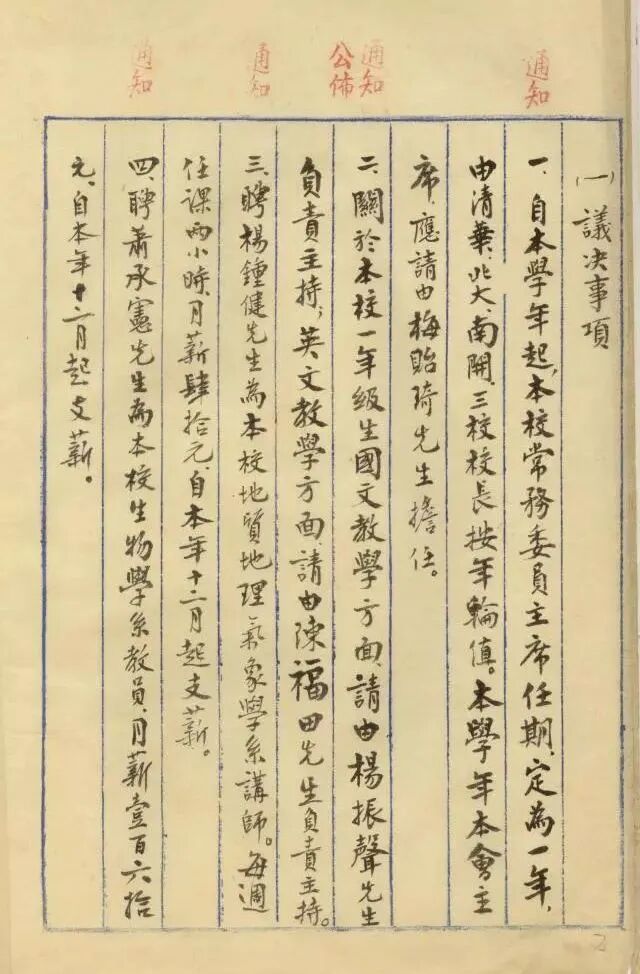 通知
通知
公佈
通知
通知
(一)議決事項
一、自本學年起，本校常務委員主席任期，定為一年，
由清華、北大、南開、三校校長按年輪值。本學年本會主
席，應請由梅貽琦先生擔任。
二、關於本校一年級生國文教學方面，請由楊振聲先生
負責主持；英文教學方面，請由陳福田先生負責主持。
三、聘楊鍾健先生為本校地質地理氣象學系講師。每週
任課兩小時，月薪肆拾元，自本年十二月起支薪。
四、聘蕭承憲先生為本校生物學系教員，月薪壹百六拾
元，自本年十二月起支薪。